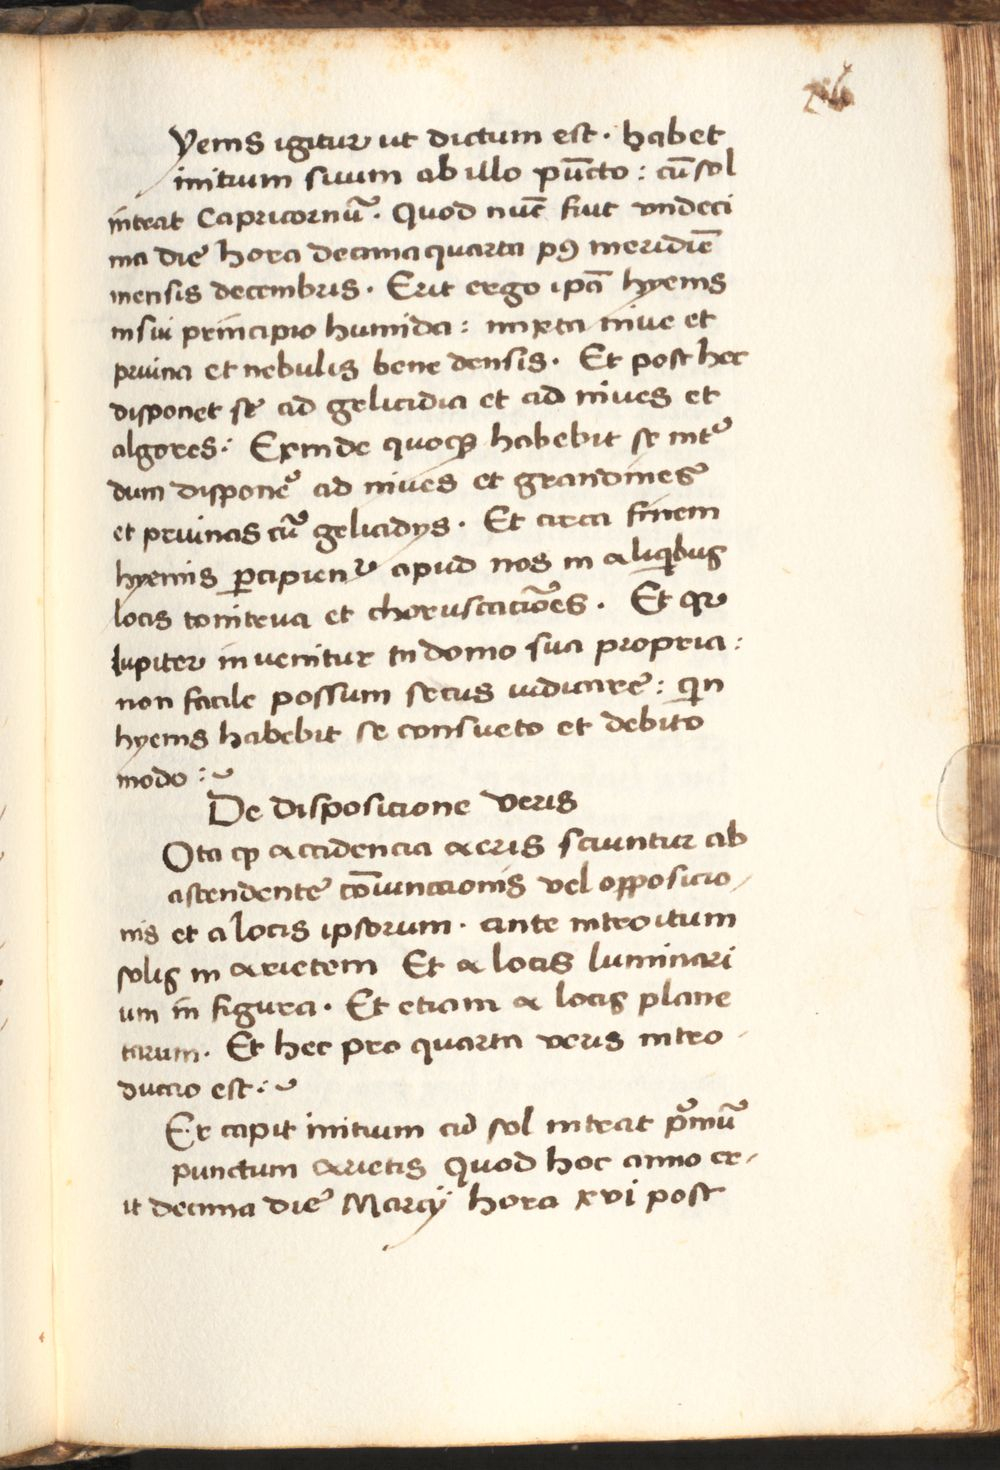 yems igitur ut dictum est. habet
initium suum ab illo pūcto: cū sol
intrat Capricornū. Quod nūc fiut undeci
ma die hora decima quarta pꝰ meridiē
mensis decembris. Erit ergo ip̄a hyems
in sui principio humida: mixta nive et
pruina et nebulis bene densis. Et post hec
disponet se ad gelicidia et ad nives et
algores: Exinde quoqꝫ habebit se int͛
dum dispone͛ ad nives et grandines
et pruinas cū gelicidys. Et circa finem
hyemis ꝑcipien͛ apud nos in aliqibus
locis tonitrua et choruscacio̅es. Et qr
Iupiter invenitur in domo sua propria:
non facile possum secus iudicare: qin
hyems habebit se consueto et debito
modo:~
De disposicione veris
Ota qꝫ accidencia aeris sciuntur ab
ascendente co̅iunctionis vel opposicio/
nis et a locis ipsorum. ante introitum
solis in arietem Et a locis luminari
um in figura. Et etiam a locis plane
tarum. Et hec pro quarta veris intro-
ductio est:~
Er capit initium cū sol intrat pͥmū
punctum arietis Quod hoc anno er-
it decima die Marcÿ hora xvi post